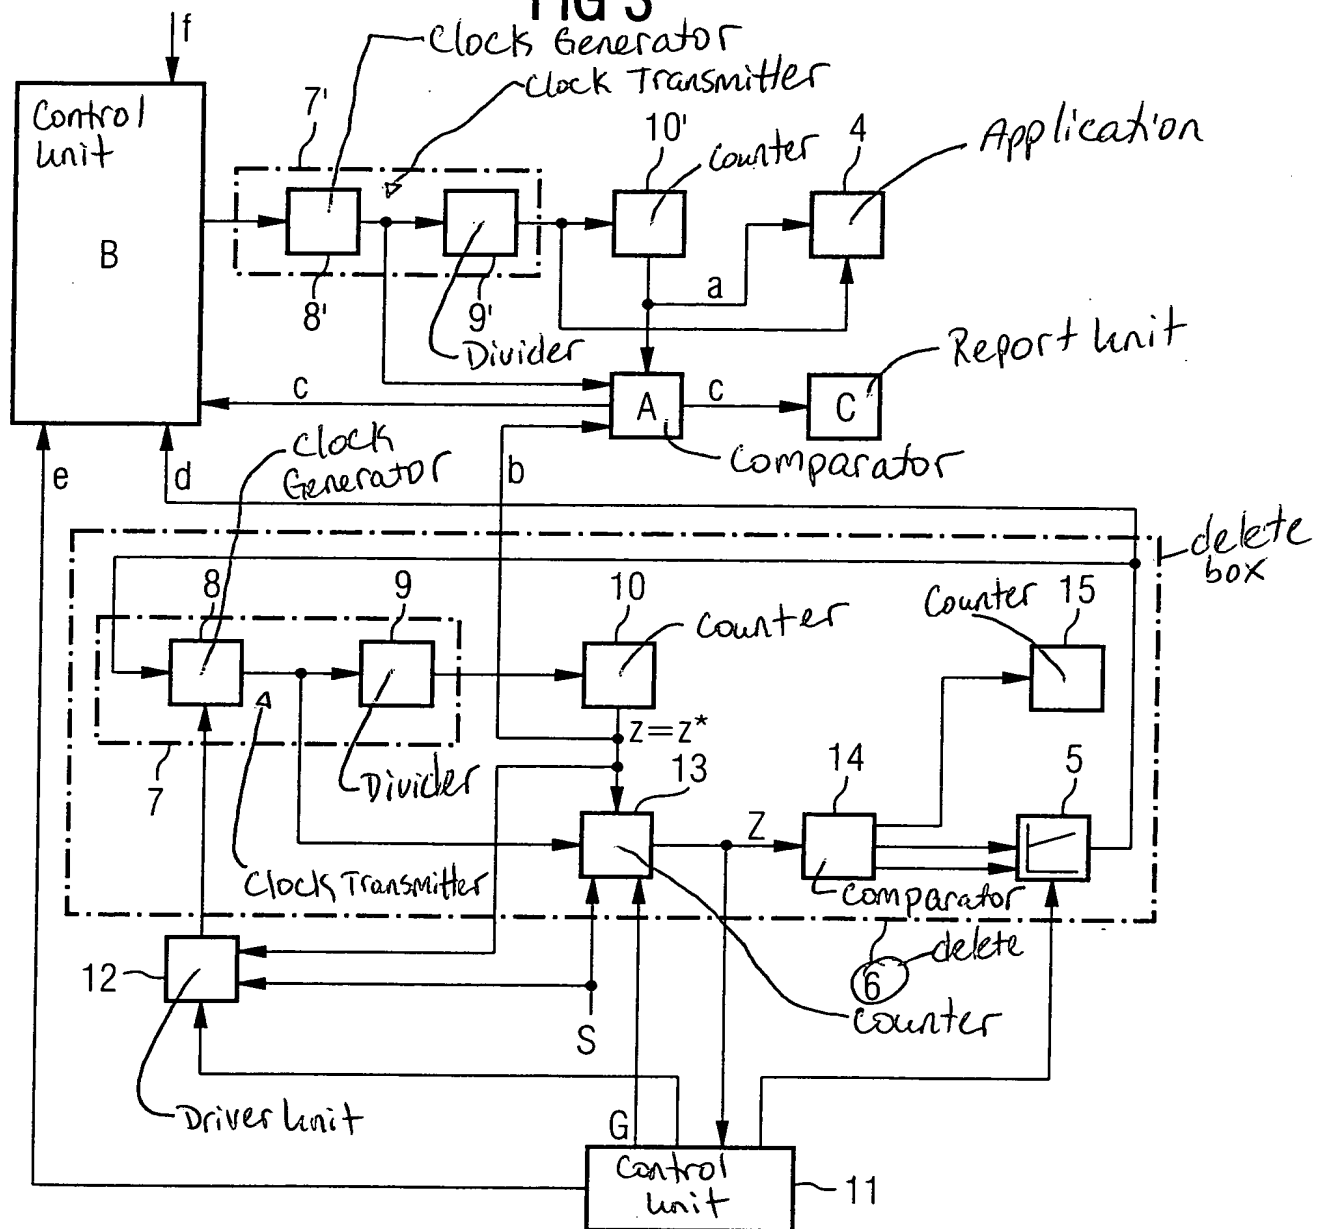 FIG 3
f
Clock Generator
Clock Transmitter
Control
Unit
B
7'
10'
Counter
4
Application
8'
9'
Divider
a
Report Unit
c
A
c
C
Comparator
e
d
Clock
Generator
b
delete
box
8
9
10
Counter
Counter
15
z=z*
7
Divider
13
14
5
Z
Clock Transmitter
Comparator
12
delete
6
Counter
S
Driver Unit
G
Control
Unit
11